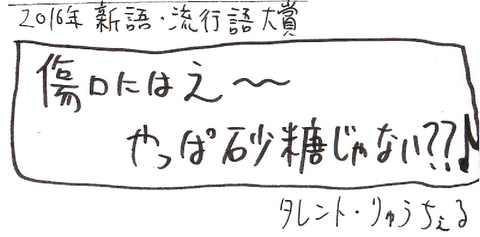 2016年 新語・流行語大賞
傷口にはえ〜
やっぱ砂糖じゃない??♪
タレント・りゅうちぇる